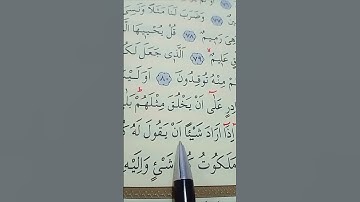 وَضَرَبَ لَنَا مَثَلًا وَنَسِيَ
هِيَ رَمِيمٌ ﴿٧٨﴾ قُلْ يُحْيِيهَا الَّذِي
﴿٧٩﴾ اَلَّذِي جَعَلَ لَكُمْ
مِنْهُ تُوقِدُونَ ﴿٨٠﴾ اَوَلَيْسَ
عَلٰٓى اَنْ يَخْلُقَ مِثْلَهُمْ بَلٰى
اِذَٓا اَرَادَ شَيْـًٔا اَنْ يَقُولَ لَهُ
مَلَكُوتُ شَيْءٍ وَاِلَيْهِ